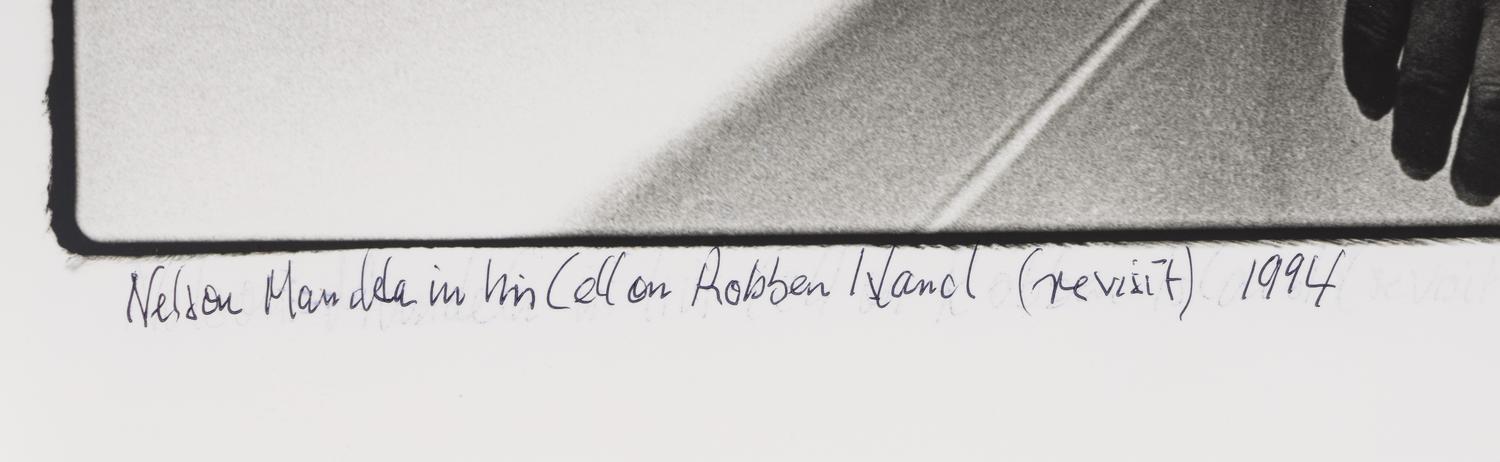 Nelson Mandela in his Cell on Robben Island (revisit) 1994